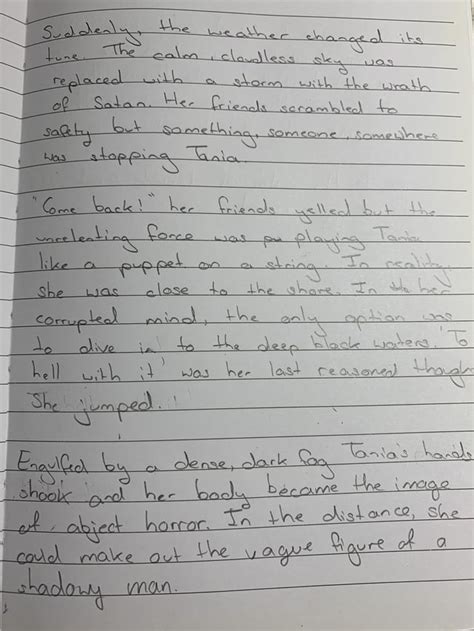 Suddenly, the weather changed its
tune. The calm, cloudless sky was
replaced with a storm with the wrath
of Satan. Her friends scrambled to
safety but something, someone, somewhere
was stopping Tania.
"Come back!" her friends yelled but the
unrelenting force was playing Tania
like a puppet on a string. In reality,
she was close to the shore. In her
corrupted mind, the only option was
to dive in to the deep black waters. 'To
hell with it' was her last reasoned though
She jumped.
Engulfed by a dense, dark fog Tania's hands
shook and her body became the image
of abject horror. In the distance, she
could make out the vague figure of a
shadowy man.